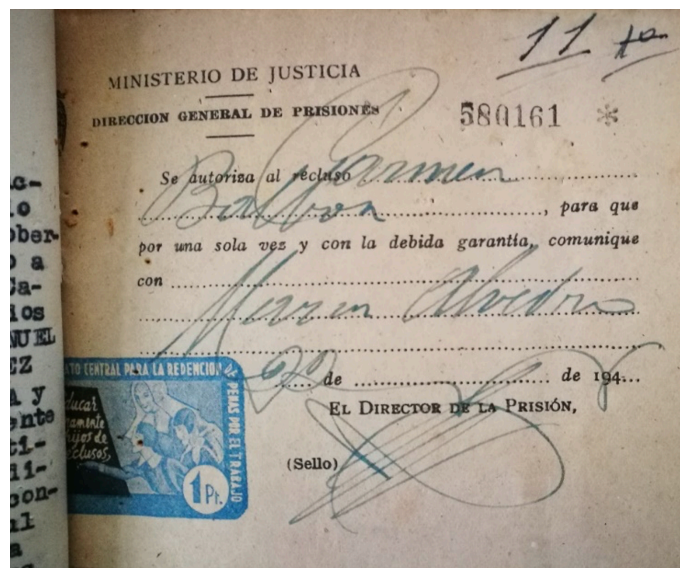 11
MINISTERIO DE JUSTICIA
DIRECCION GENERAL DE PRISIONES
580161 *
Se autoriza al recluso Carmen
, para que
por una sola vez y con la debida garantía, comunique
con
de de 194
EL DIRECTOR DE LA PRISIÓN,
(Sello)
ATO CENTRAL PARA LA REDENCION DE PENAS POR EL TRABAJO
ducar
amente
hijos de
clusos,
1 Pt.
c-
o
ober-
o a
Ca-
ios
NUEL
EZ
y
ente
ti-
li-
con-
al
a